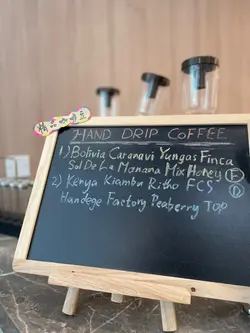 精品咖啡豆
HAND DRIP COFFEE
1) Bolivia Caranavi Yungas Finca
Sol De La Manana Mix Honey E
2) Kenya Kiambu Ritho FCS D
Handege Factory Peaberry TOP